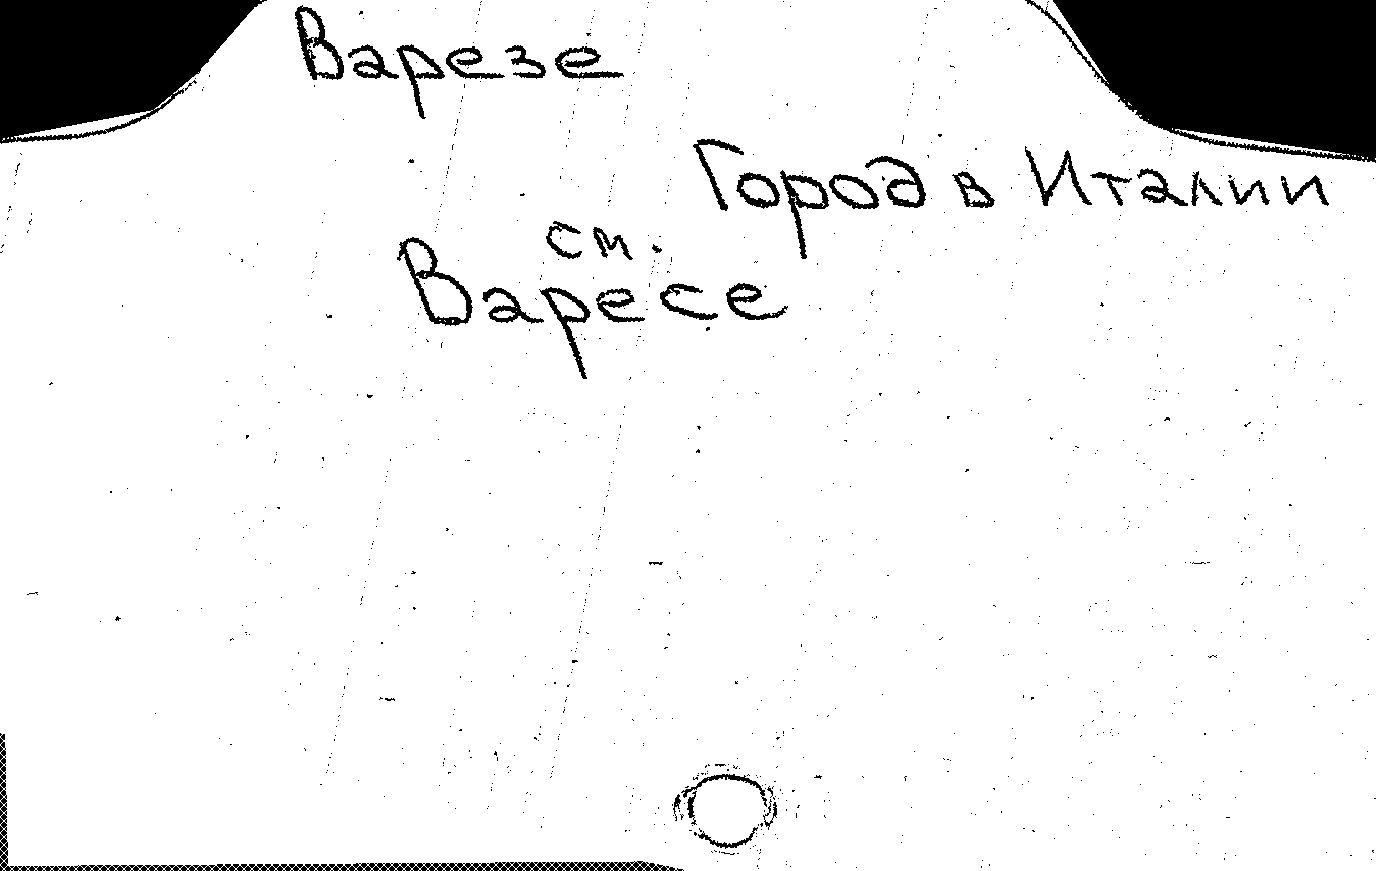 Варезе
Город в Италии
см.
Варесе